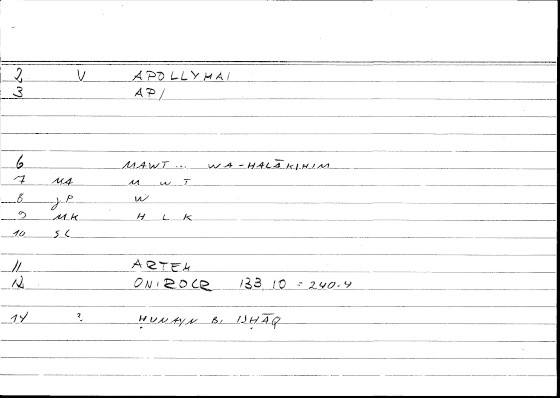 2 V APOLLYMAI
3 API
6 MAWT ... WA-HALĀKIHIM
7 MA M W T
8 JP W
9 MK H L K
10 SL
11 ARTEM
12 ONIROCR 133, 10 = 240.4
14 ? ḤUNAYN B. ISḤĀQ